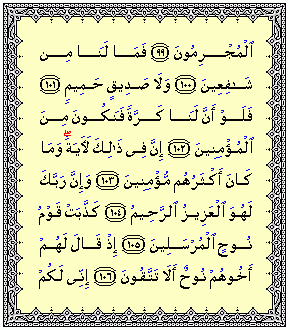 ٱلْمُجْرِمُونَ ﴿٩٩﴾ فَمَا لَنَا مِن
شَـٰفِعِينَ ﴿١٠٠﴾ وَلَا صَدِيقٍ حَمِيمٍ ﴿١٠١﴾
فَلَوْ أَنَّ لَنَا كَرَّةً فَنَكُونَ مِنَ
ٱلْمُؤْمِنِينَ ﴿١٠٢﴾ إِنَّ فِى ذَٰلِكَ لَـَٔايَةً ۖ وَمَا
كَانَ أَكْثَرُهُم مُّؤْمِنِينَ ﴿١٠٣﴾ وَإِنَّ رَبَّكَ
لَهُوَ ٱلْعَزِيزُ ٱلرَّحِيمُ ﴿١٠٤﴾ كَذَّبَتْ قَوْمُ
نُوحٍ ٱلْمُرْسَلِينَ ﴿١٠٥﴾ إِذْ قَالَ لَهُمْ
أَخُوهُمْ نُوحٌ أَلَا تَتَّقُونَ ﴿١٠٦﴾ إِنِّى لَكُمْ